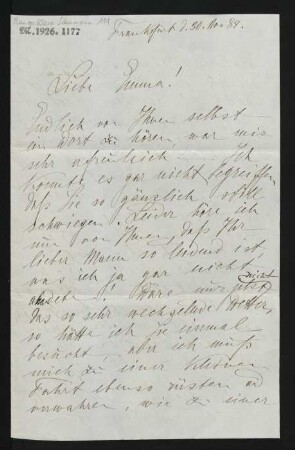 Dk.1926.1177
Frankfurt d. 30. Nov 89.
Liebe Emma!
Endlich von Ihnen selbst
ein Wort zu hören, war mir
sehr erfreulich. Ich
konnte es gar nicht begreiffen
daß Sie so gänzlich still
schwiegen. Leider höre ich
nun von Ihnen, daß Ihr
lieber Mann so leidend ist,
was ich ja gar nicht
ahndete! Wäre nur nicht jetzt
das so sehr wechselnde Wetter,
so hätte ich Sie einmal
besucht, aber ich muß
mich zu einer kleinen
Fahrt ebenso rüsten und
verwahren, wie zu einer